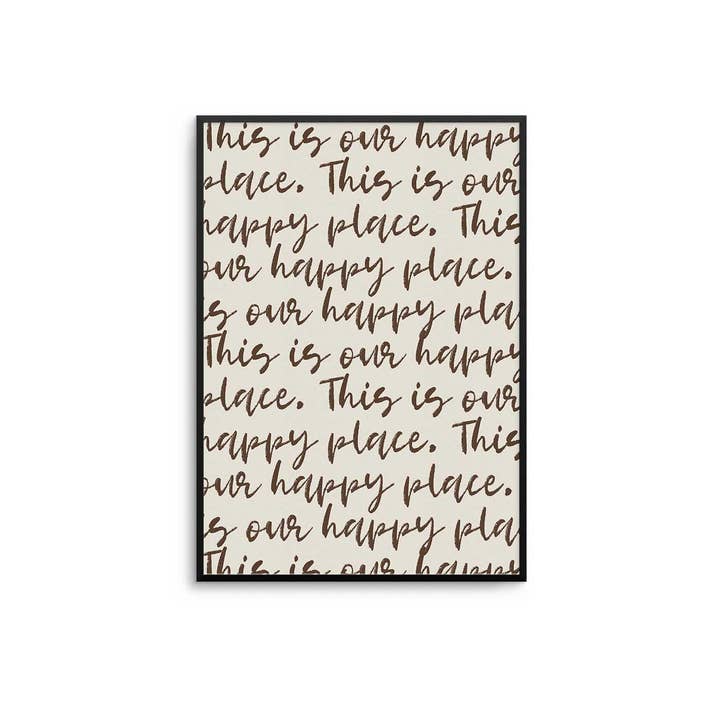 This is our happy
place. This is our
happy place. This
our happy place.
is our happy pla
This is our happy
place. This is our
happy place. This
our happy place.
is our happy pla
This is our happy